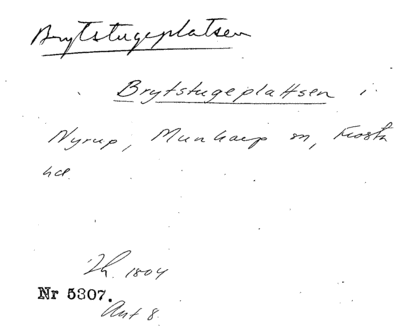 Brytstugeplatsen
Brytstugeplattsen i
Nyrup, Munkarp sn, Frosta
hd
Lh. 1804
Nr 5307.
Akt 8